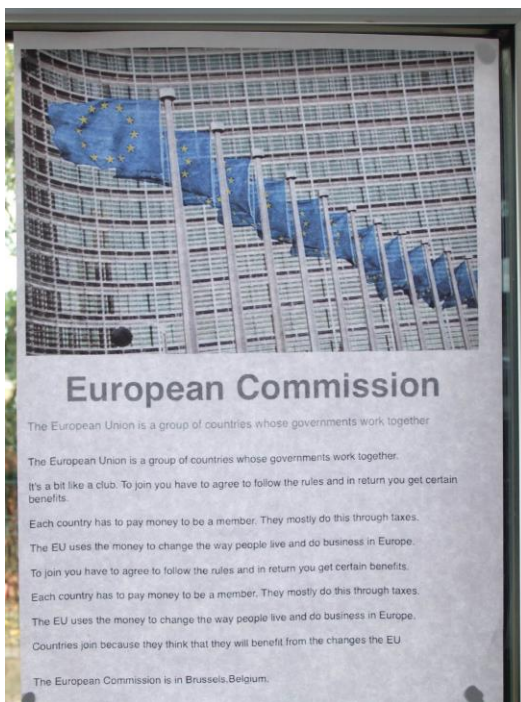 European Commission
The European Union is a group of countries whose governments work together
The European Union is a group of countries whose governments work together.
It's a bit like a club. To join you have to agree to follow the rules and in return you get certain
benefits.
Each country has to pay money to be a member. They mostly do this through taxes.
The EU uses the money to change the way people live and do business in Europe.
To join you have to agree to follow the rules and in return you get certain benefits.
Each country has to pay money to be a member. They mostly do this through taxes.
The EU uses the money to change the way people live and do business in Europe.
Countries join because they think that they will benefit from the changes the EU
The European Commission is in Brussels,Belgium.